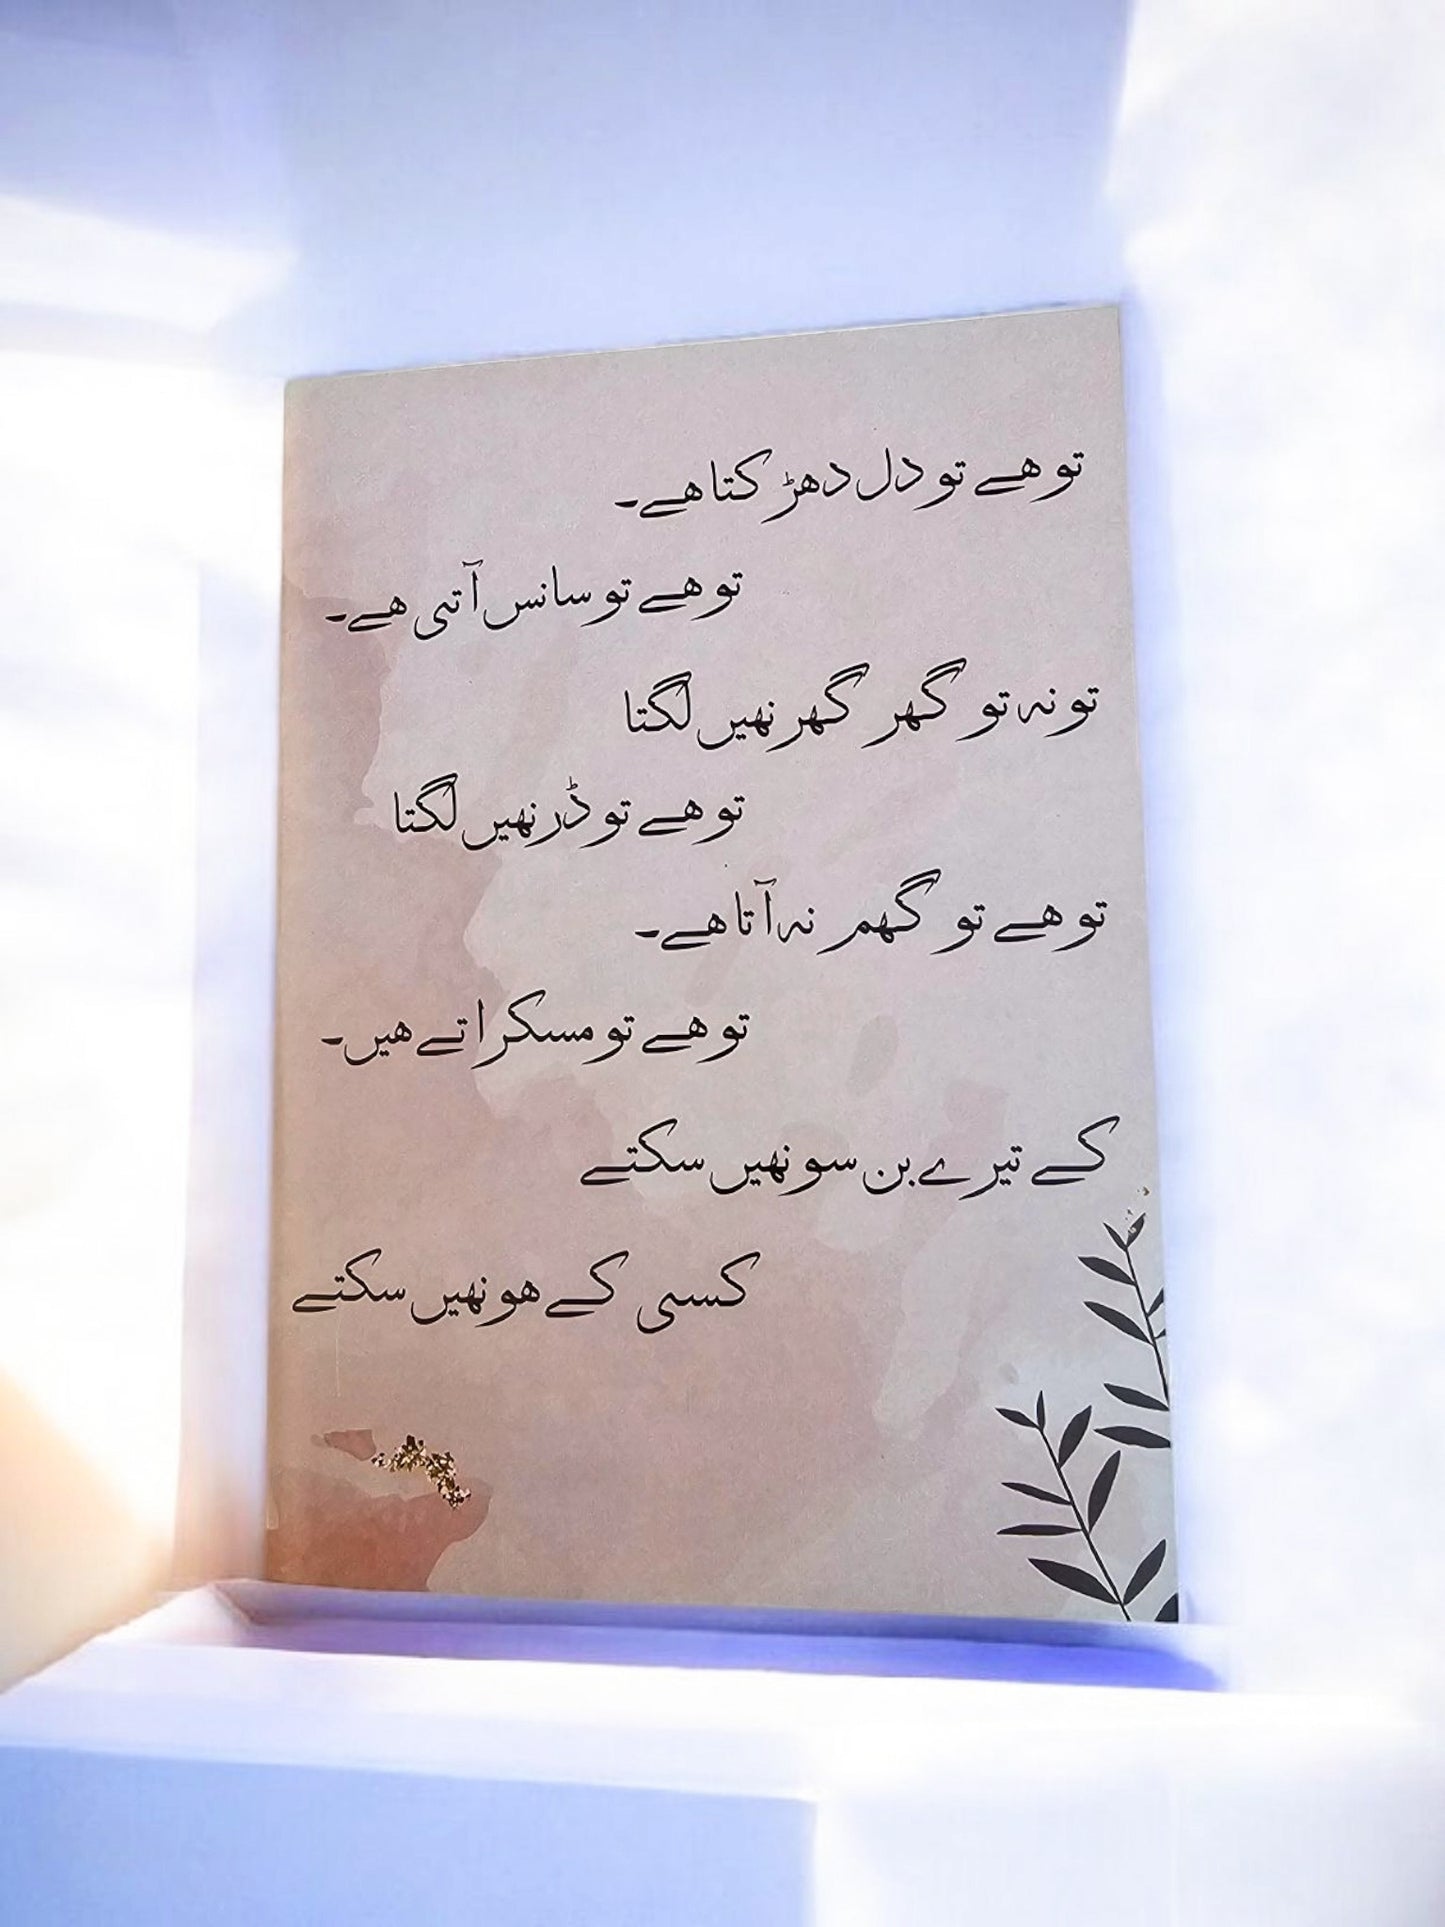 تو هے تو دل دهڑکتا هے۔
تو هے تو سانس آتی هے۔
تو نہ تو گھر گھر نهیں لگتا
تو هے تو ڈر نهیں لگتا
تو هے تو گهم نہ آتا هے۔
تو هے تو مسکراتے هیں۔
کے تیرے بن سو نهیں سکتے
کسی کے هو نهیں سکتے